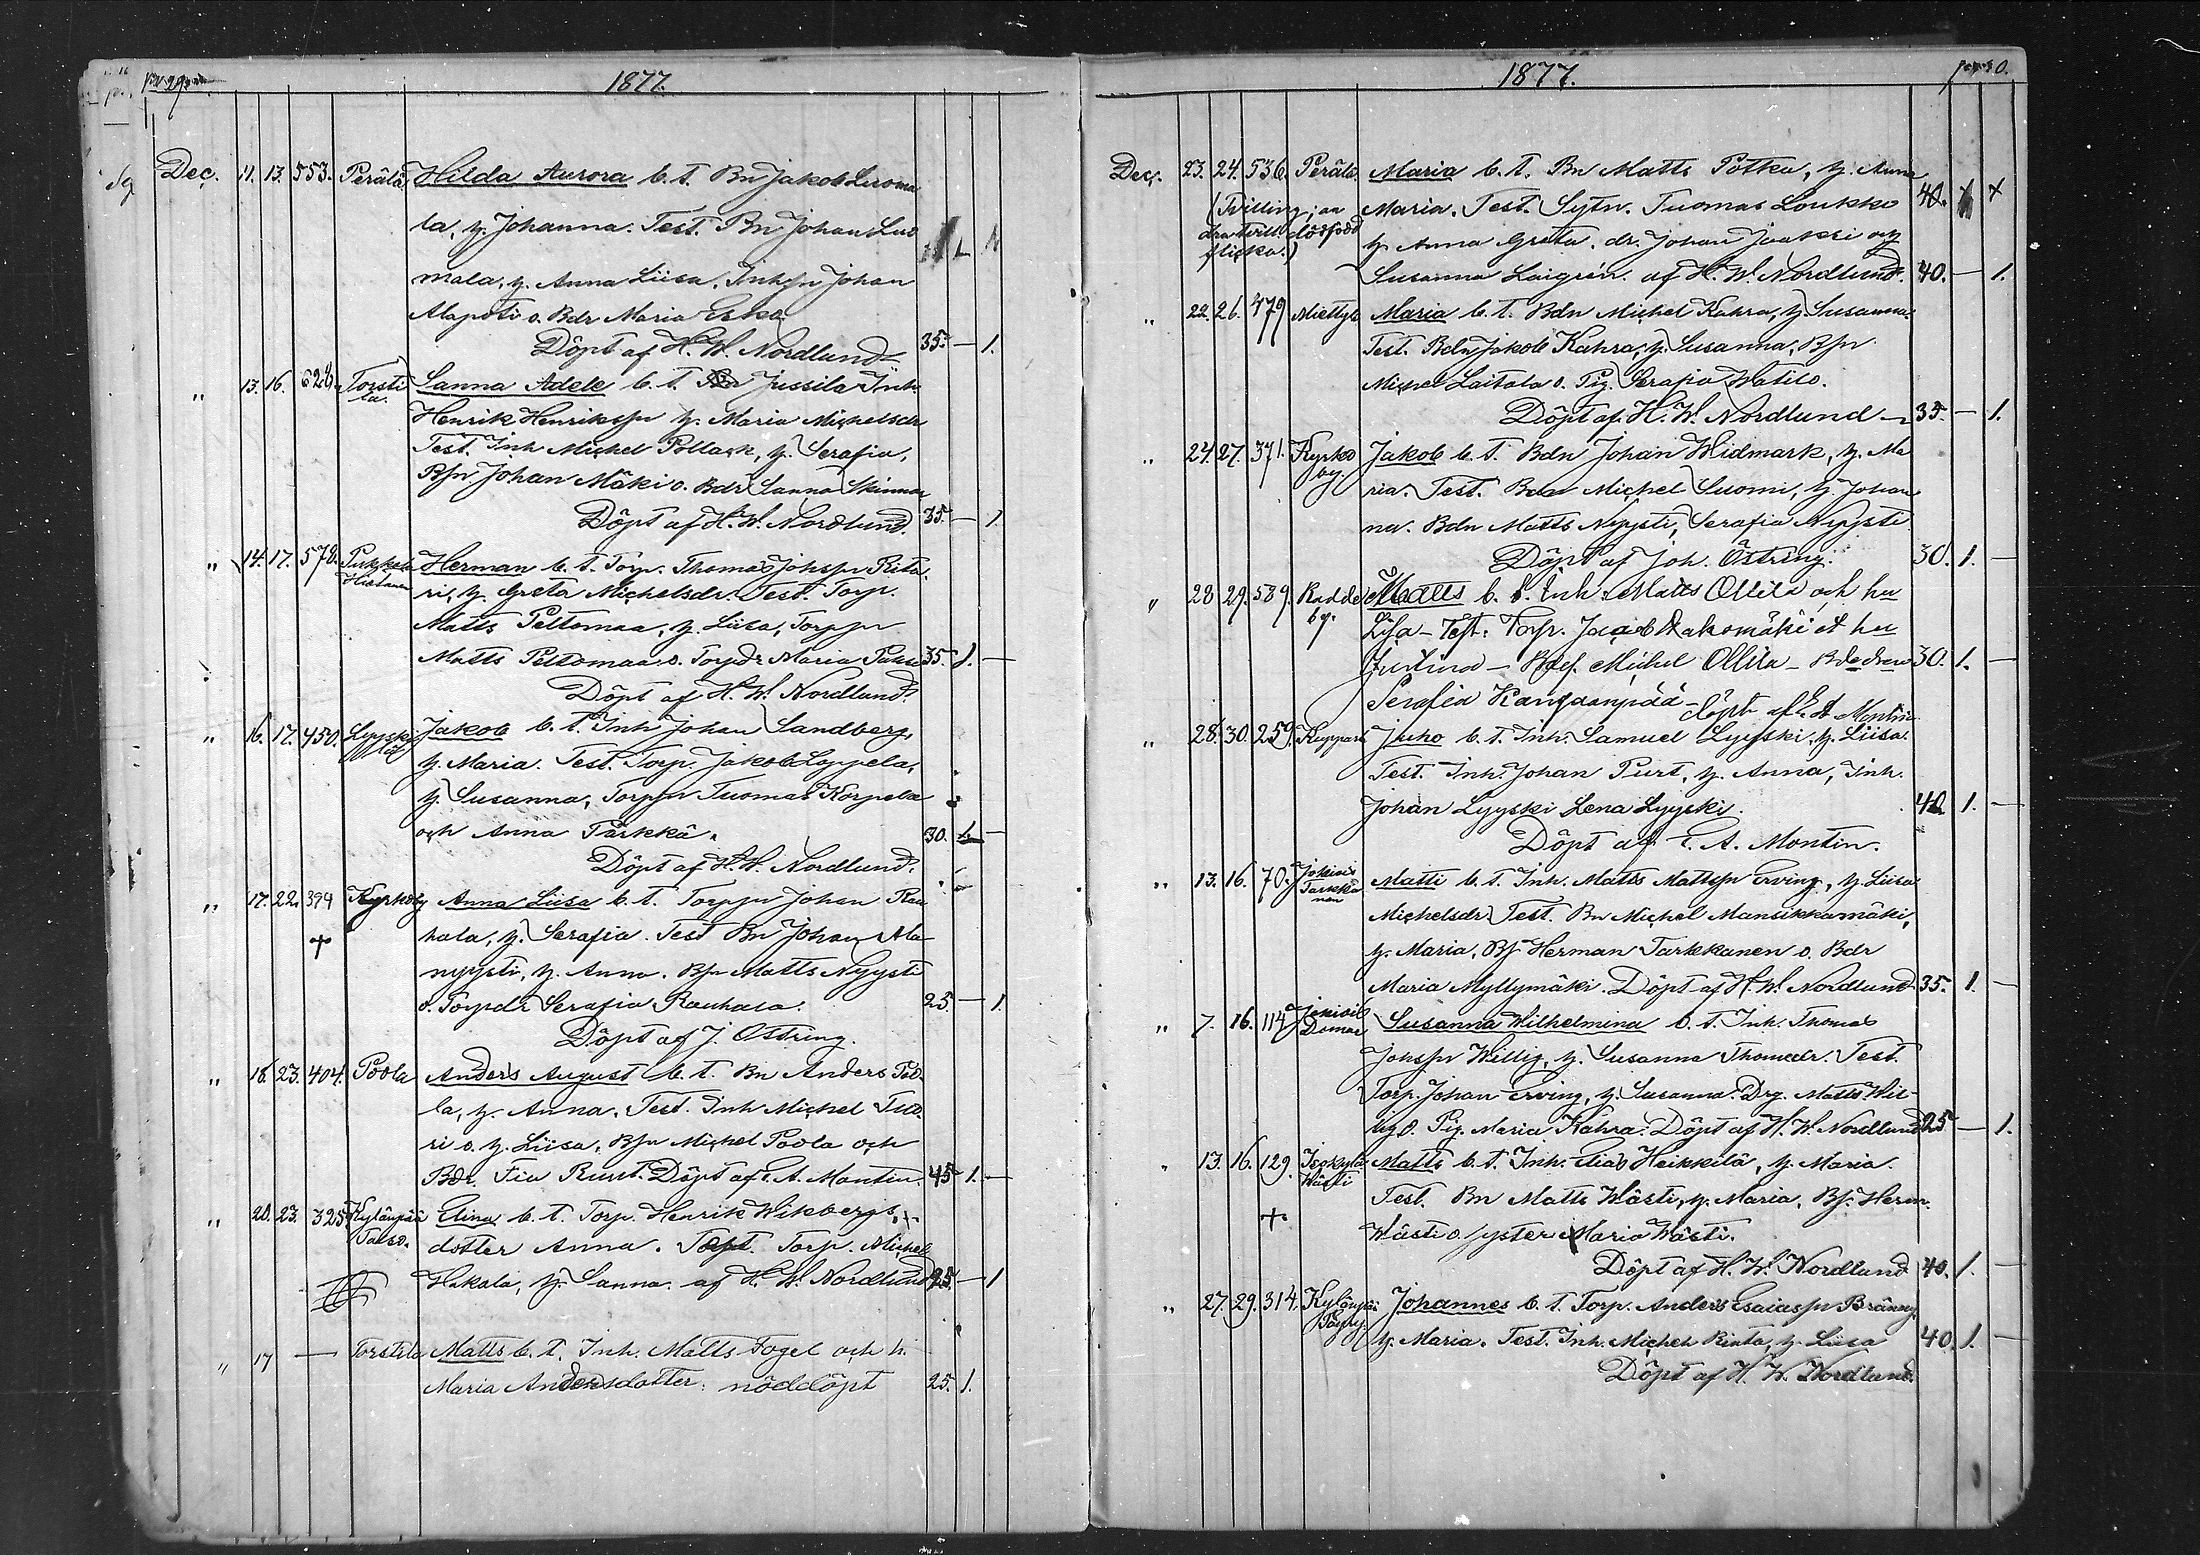 1877.
Dec. 11. 13. 553. Perälä Hilda Aurora b. t. Bn Jakob Luoma
la, h. Johanna. Test. Bn Johan Luo
mala, h. Anna Liisa, Inhsn Johan
Alapoti o. Bdr Maria Esko.
Döpt af H. W. Nordlund 35. — 1.
" 13. 16. 628. Torsti
la. Sanna Adele b. t. Jussila Inh.
Henrik Henrikssn h. Maria Michelsdr
Test. Inh Michel Pollack, h. Serafia,
Bsn Johan Mäki o. Bdr Sanna Skinnar
Döpt af H. W. Nordlund. 35. — 1.
" 14. 17. 578. Herman b. t. Torp. Thomas Johssn Rita
ri, h. Greta Michelsdr. Test. Torp.
Matts Peltomaa, h. Liisa, Torpsn
Matts Peltomaa o. Torpdr Maria 35. 1. —
Döpt af H. W. Nordlund.
" 16. 17. 450. Lyyski
lä Jakob b. t. Inh Johan Sandberg,
h. Maria. Test. Torp. Jakob Loppela,
h. Susanna, Torpsn Tuomas Korpela
och Anna Pärkkä. 30. 1. —
Döpt af H. W. Nordlund.
" 17. 22. 399 Kyrkoby Anna Liisa b. t. Torpsn Johan Rau
+ hala, h. Serafia. Test Bn Johan Ala
nyysti, h. Anna. Bsn Matts Nyysti
o. Torpdr Serafia Rauhala. 25. — 1.
Döpt af J. Östring.
" 18. 23. 404. Poola Anders August b. t. Bn Anders Poo
la, h. Anna. Test. Inh Michel Tuo
ri o. h. Liisa, Bsn Michel Poola och
Bdr. Fia Ruut. Döpt af E. A. Montin. 45 1. —
" 20. 23. 325 Kylänpää
Talso. Elina b. t. Torp. Henrik Wikbergs
dotter Anna. Torp. Michel
Hakala, h. Sanna. af H. W. Nordlund 25. — 1
" 17 — Torstila Matts b. t. Inh. Matts Fogel och h.
Maria Andersdotter. nöddöpt 25. 1.
1877.
Dec. 23. 24. 536. Perälä. Maria b. t. Bn Matts Potka, h. Anna
(Tvilling; an
dra tvill. dödfödd
flicka.) Maria. Test. Sytn. Tuomas Loukko 40. +
h. Anna Greta. dr. Johan Jaakri och
Susanna Laigrén. af H. W. Nordlund. 40. — 1.
" 22. 26. 479 Miettylä Maria b. t. Bdn Michel Kahra, h. Susanna.
Test. Bdn Jakob Kahra, h. Susanna, Bsn
Michel Laitala o. Pig. Serafia Watilo.
Döpt af H. W. Nordlund 35. — 1.
" 24. 27. 371. Kyrko
by. Jakob b. t. Bdn Johan Widmark, h. Ma
ria. Test. Bdn Michel Suomi, h. Johan
na. Bdn Matts Nyysti, Serafia Nyysti.
Döpt af Joh. Östring. 30. 1. —
" 28 29. 589. Rudde
by. Matts b. t. Inh. Matts Ollila och hu
Lisa — Test. Torp. Jacob et hu
Justina — Michel Ollila — 30. 1. —
Serafia Kangaanpää — döpt af E. A. Montin.
" 28. 30. 259. Ruppart Juho b. t. Inh. Samuel Lyyski, h. Liisa.
Test. Inh. Johan Purt, h. Anna, Inh.
Johan Lyyski Lena Lyyski. 40. 1. —
Döpt af E. A. Montin.
" 13. 16. 70. Jokivis
Tarkka
nen Matti b. t. Inh. Matts Mattssn Erving, h. Liisa
Michelsdr. Test. Bn Michel Mansikkamäki,
h. Maria, Bs Herman Tarkkanen o. Bdr
Maria Myllymäki. Döpt af H. W. Nordlund 35. 1. —
" 7. 16. 114 Susanna Wilhelmina b. t. Inh. Thomas
Johssn Willig, h. Susanna Thomasdr. Test.
Torp. Johan Erving, h. Susanna. Drg. Matts Wil-
lig o. Pig. Maria Kahra. Döpt af H. W. Nordlund 25 — 1.
" 13. 16. 129. Wästi Matts b. t. Inh. Elias Heikkilä, h. Maria.
Test. Bn Matts Wästi, h. Maria, Bs. Herm.
+ Wästi o. syster Maria Wästi.
Döpt af H. W. Nordlund 40. 1. —
" 27. 29. 314. Kylänpää Johannes b. t. Torp. Anders Esaiassn Bränny
h. Maria. Test. Inh. Michel Rinta, h. Liisa 40. 1. —
Döpt af H. W. Nordlund.